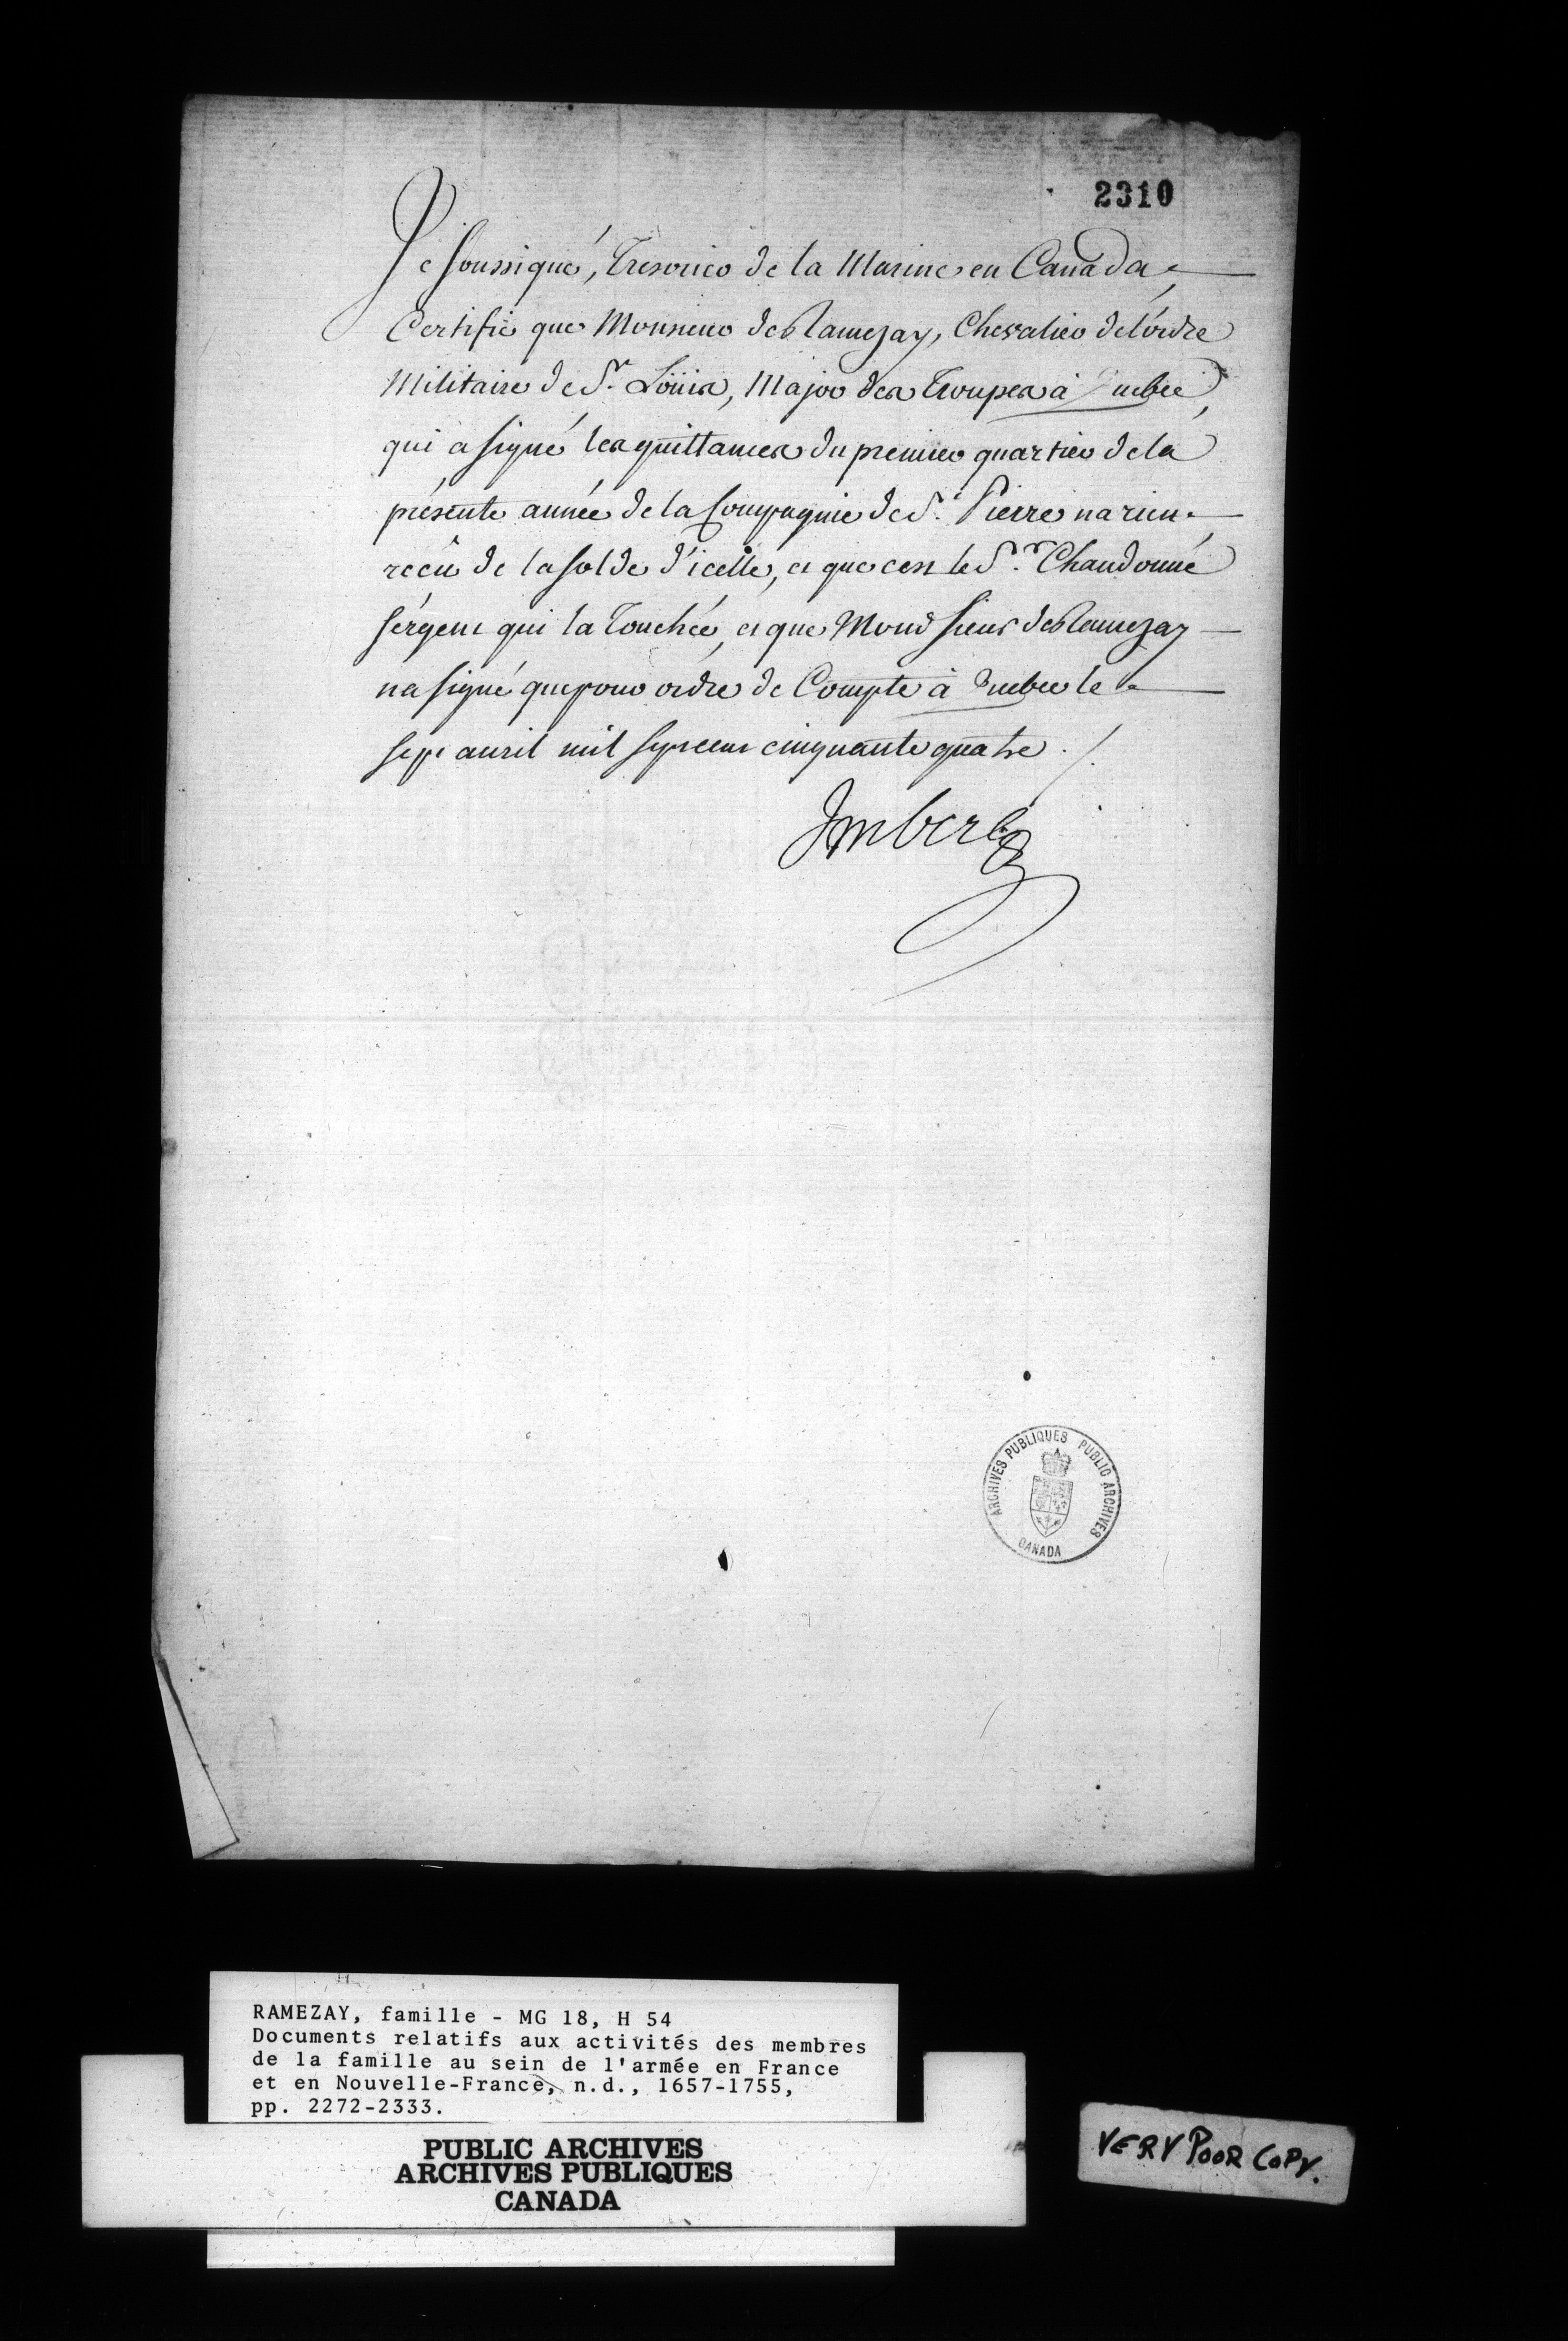 2310
Je soussigné, Tresorier de la Marine en Canada,
Certifie que Monsieur de Ramezay, Chevalier de l'ordre
Militaire de St. Loüis, Major des Troupes à Quebec,
qui a signé les quittances du premier quartier de la
présente année de la Compagnie de St. Pierre na rien
recû de la solde d'icelle, et que cest le Sr. Chaudonné
sergent qui la Touchée, et que Mond Sieur de Ramezay
na signé que pour ordre de Compte à Quebec le
sept avril mil sept cent cinquante quatre ./.
Imbert
ARCHIVES PUBLIQUES PUBLIC ARCHIVES
CANADA
RAMEZAY, famille - MG 18, H 54
Documents relatifs aux activités des membres
de la famille au sein de l'armée en France
et en Nouvelle-France, n.d., 1657-1755,
pp. 2272-2333.
PUBLIC ARCHIVES
ARCHIVES PUBLIQUES
CANADA
VERY POOR COPY.